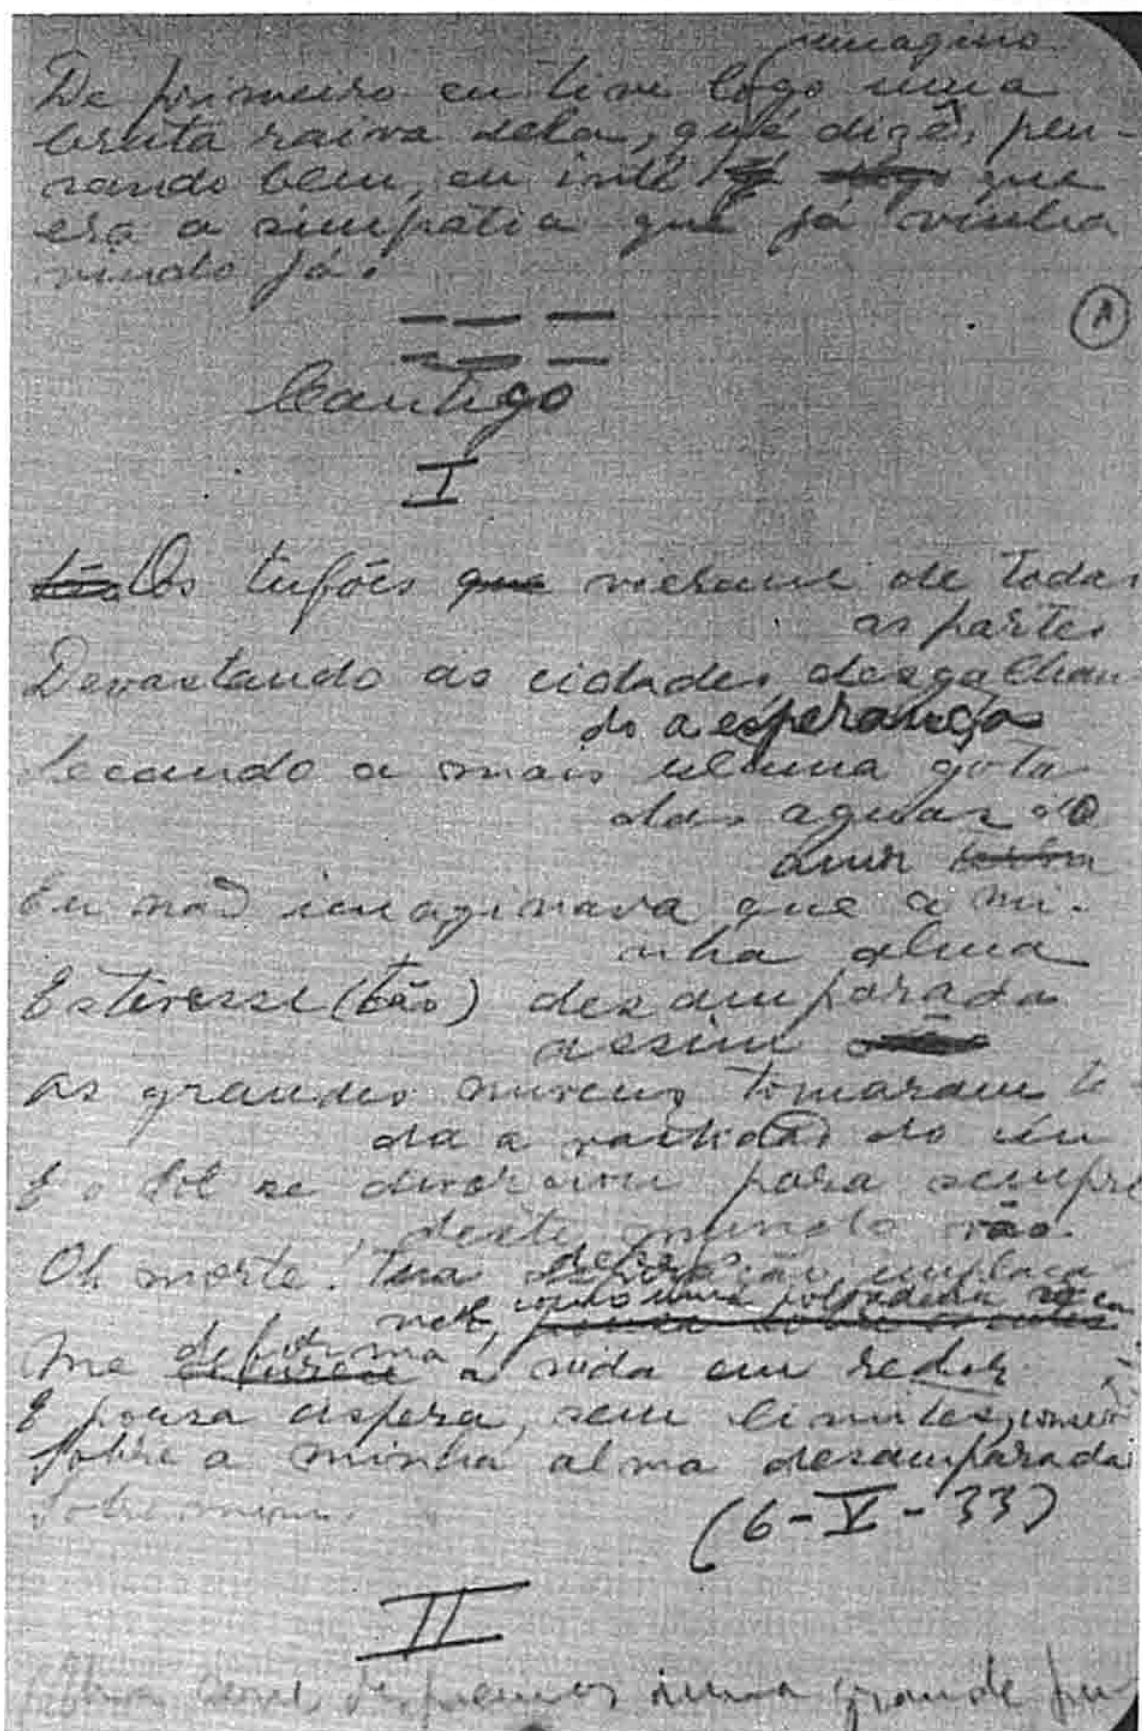 immagino
De primeiro eu tive logo uma
bruta raiva dela, qué dizê, pen-
sando bem, eu inté que
era a simpatia que já vinha
vindo já.
A
Cantigo
I
Os tufões que vieram de todas
as partes
Devastando as cidades, desgalhan-
do a esperança
Secando a mais ultima gota
das aguas do
amor
Eu não imaginava que a mi-
nha alma
Estivesse (tão) desamparada
assim
As grandes nuvens tomaram to-
da a vastidão do céu
E o Sol se divorciou para sempre
deste mundo vão.
Oh morte! tua implaca-
vel, como uma
Me deforma a vida em redor
E pousa aspera, sem limites,
Sobre a minha alma desamparada
Sobre mim.
(6-V-33)
II
numa grande